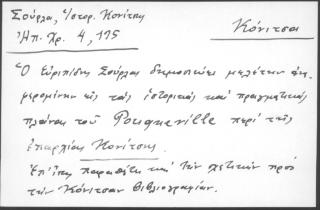 Σούρλα, Ἱστορ. Κονίτσης
Κόνιτσα
Ἠπ. Χρ. 4, 175
Ὁ Εὐριπίδης Σούρλας δημοσιεύει μελέτην
εἰς τὰς ἱστορικὰς καὶ πραγματικὰς
πλάνας τοῦ Pouqueville περὶ τῆς
ἐπαρχίας Κονίτσης.
Ἐπίσης παραθέτει καὶ τὴν σχετικὴν πρὸς
τὴν Κόνιτσαν βιβλιογραφίαν.